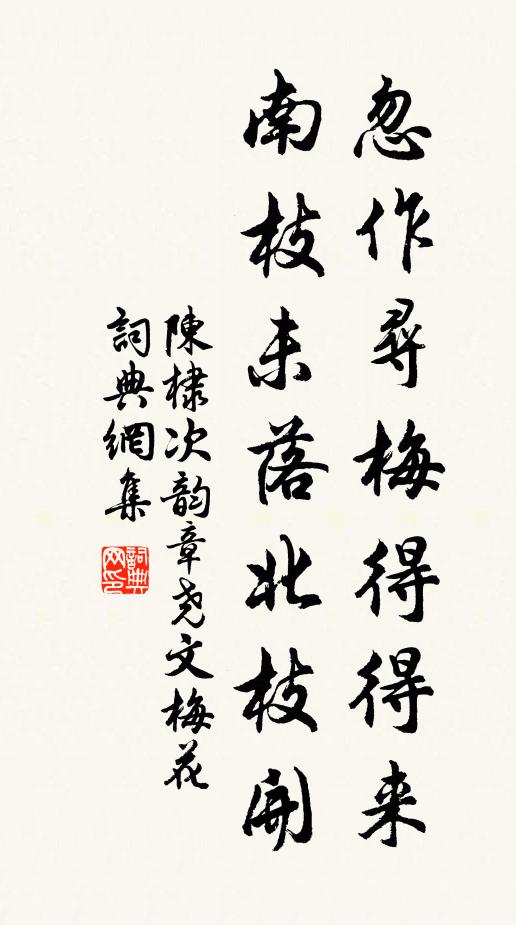 忽作尋梅得得来
南枝未落北枝開
陳棣次韵章尧文梅花
詞典網集
詞典网印